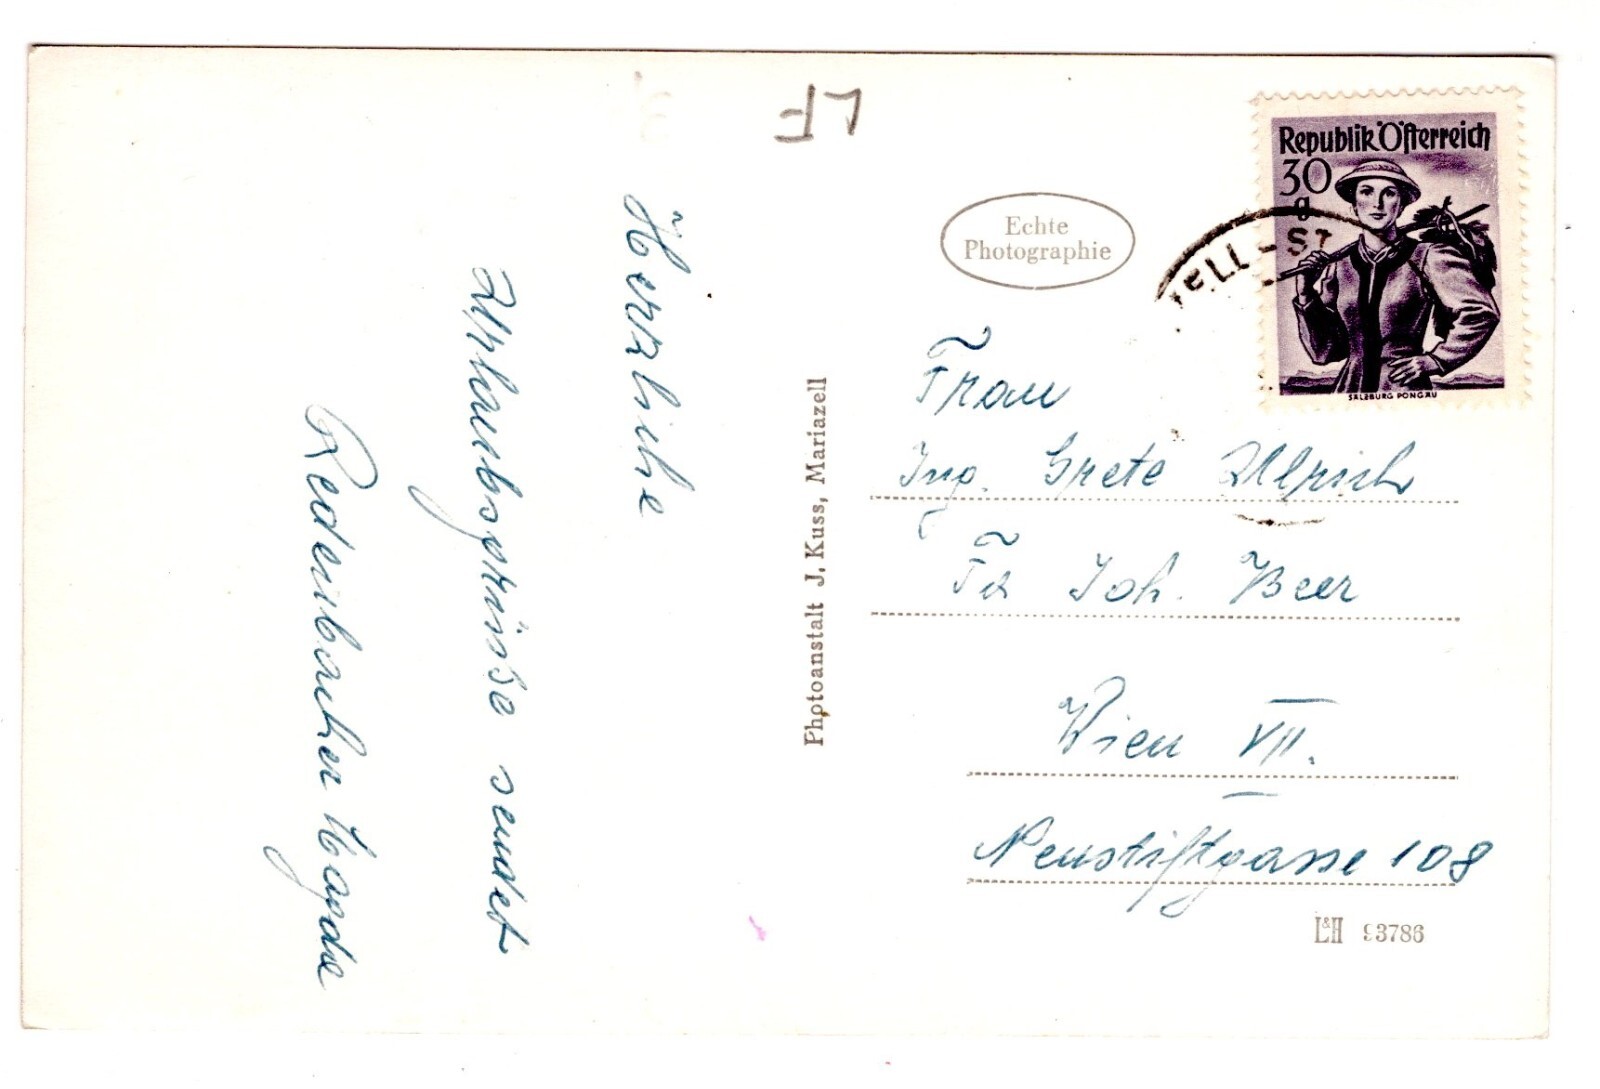 LF
Herzliche
Urlaubsgrüsse sendet
Redenbacher Magda
Photoanstalt J. Kuss, Mariazell
Echte
Photographie
Republik Österreich
30
g
SALZBURG PONGAU
ELL-ST
Frau
Ing. Grete Ullrich
Fa Joh. Beer
Wien VII.
Neustiftgasse 108
L&H 93786